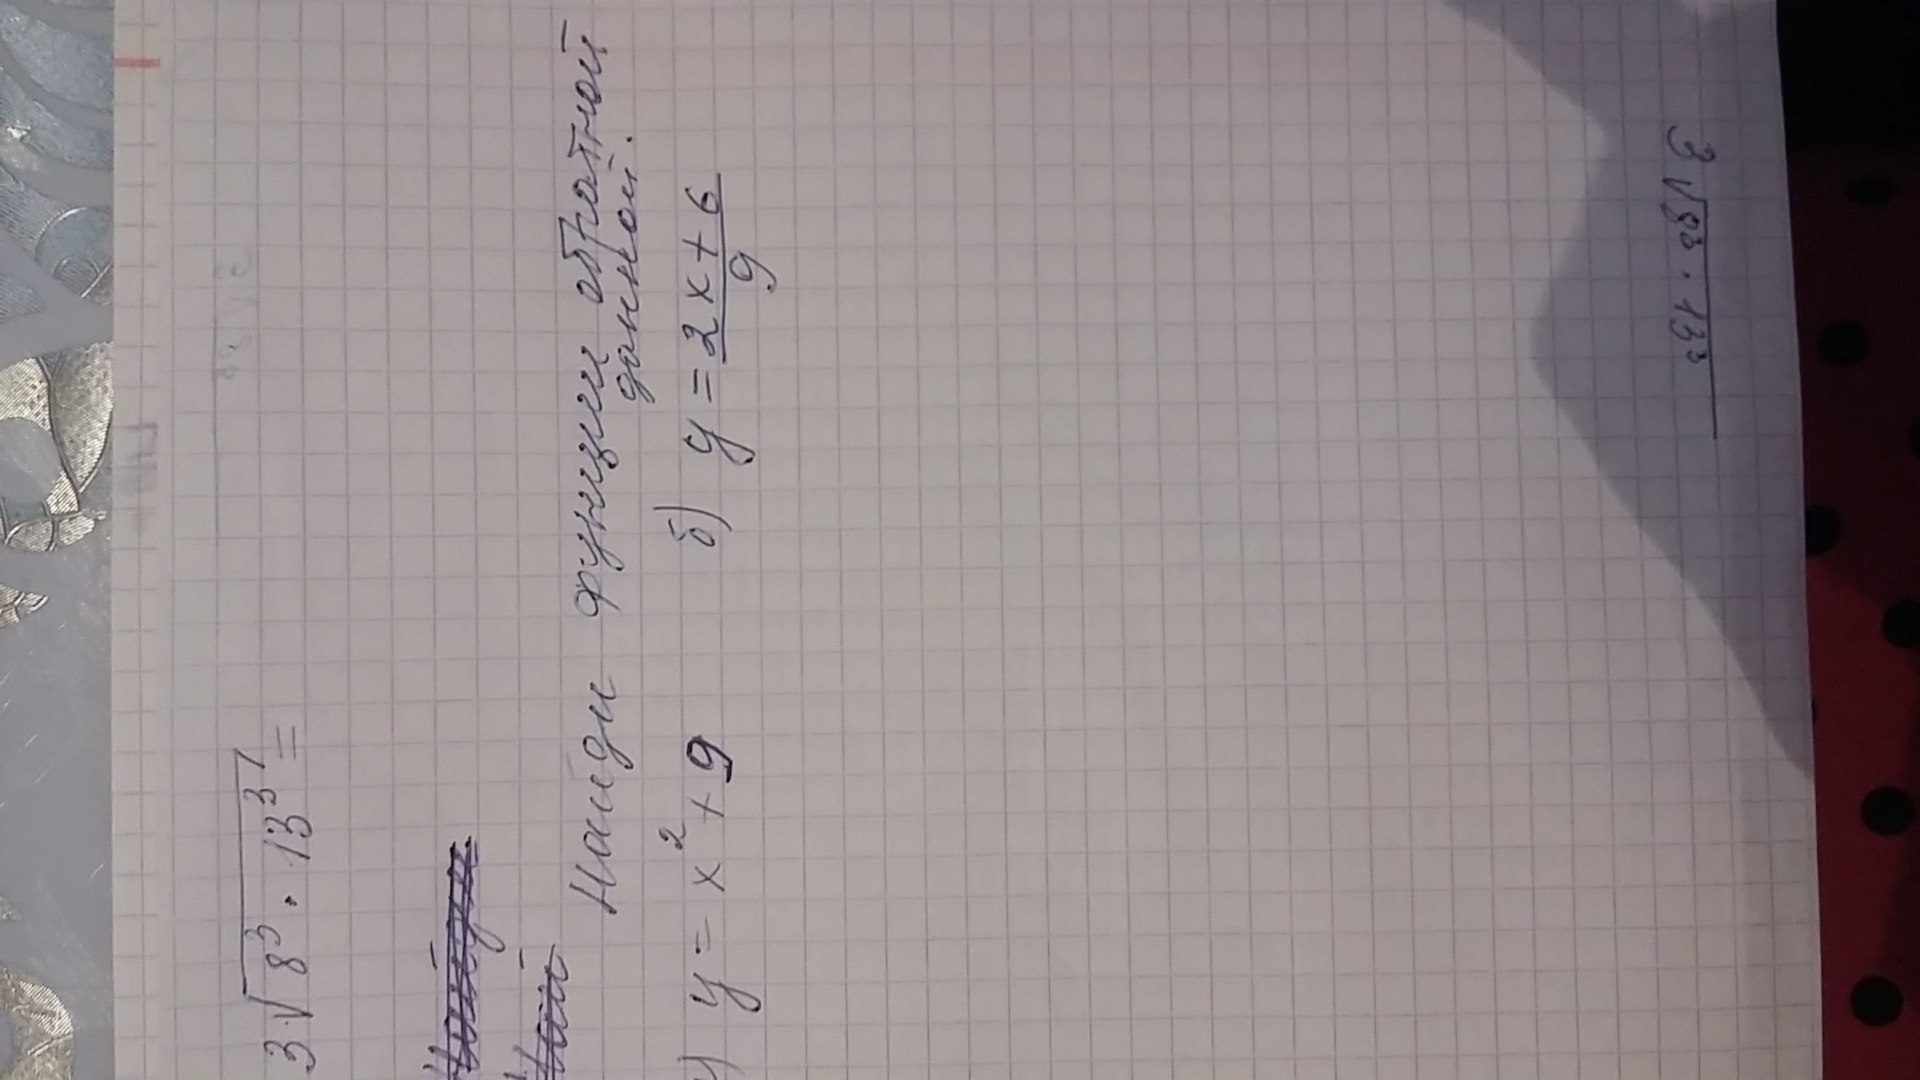 3·√8³·13³ =
Найди функции обратной
данной.
) y = x² + 9 б) y = 2x+6
9
3√8³·13³